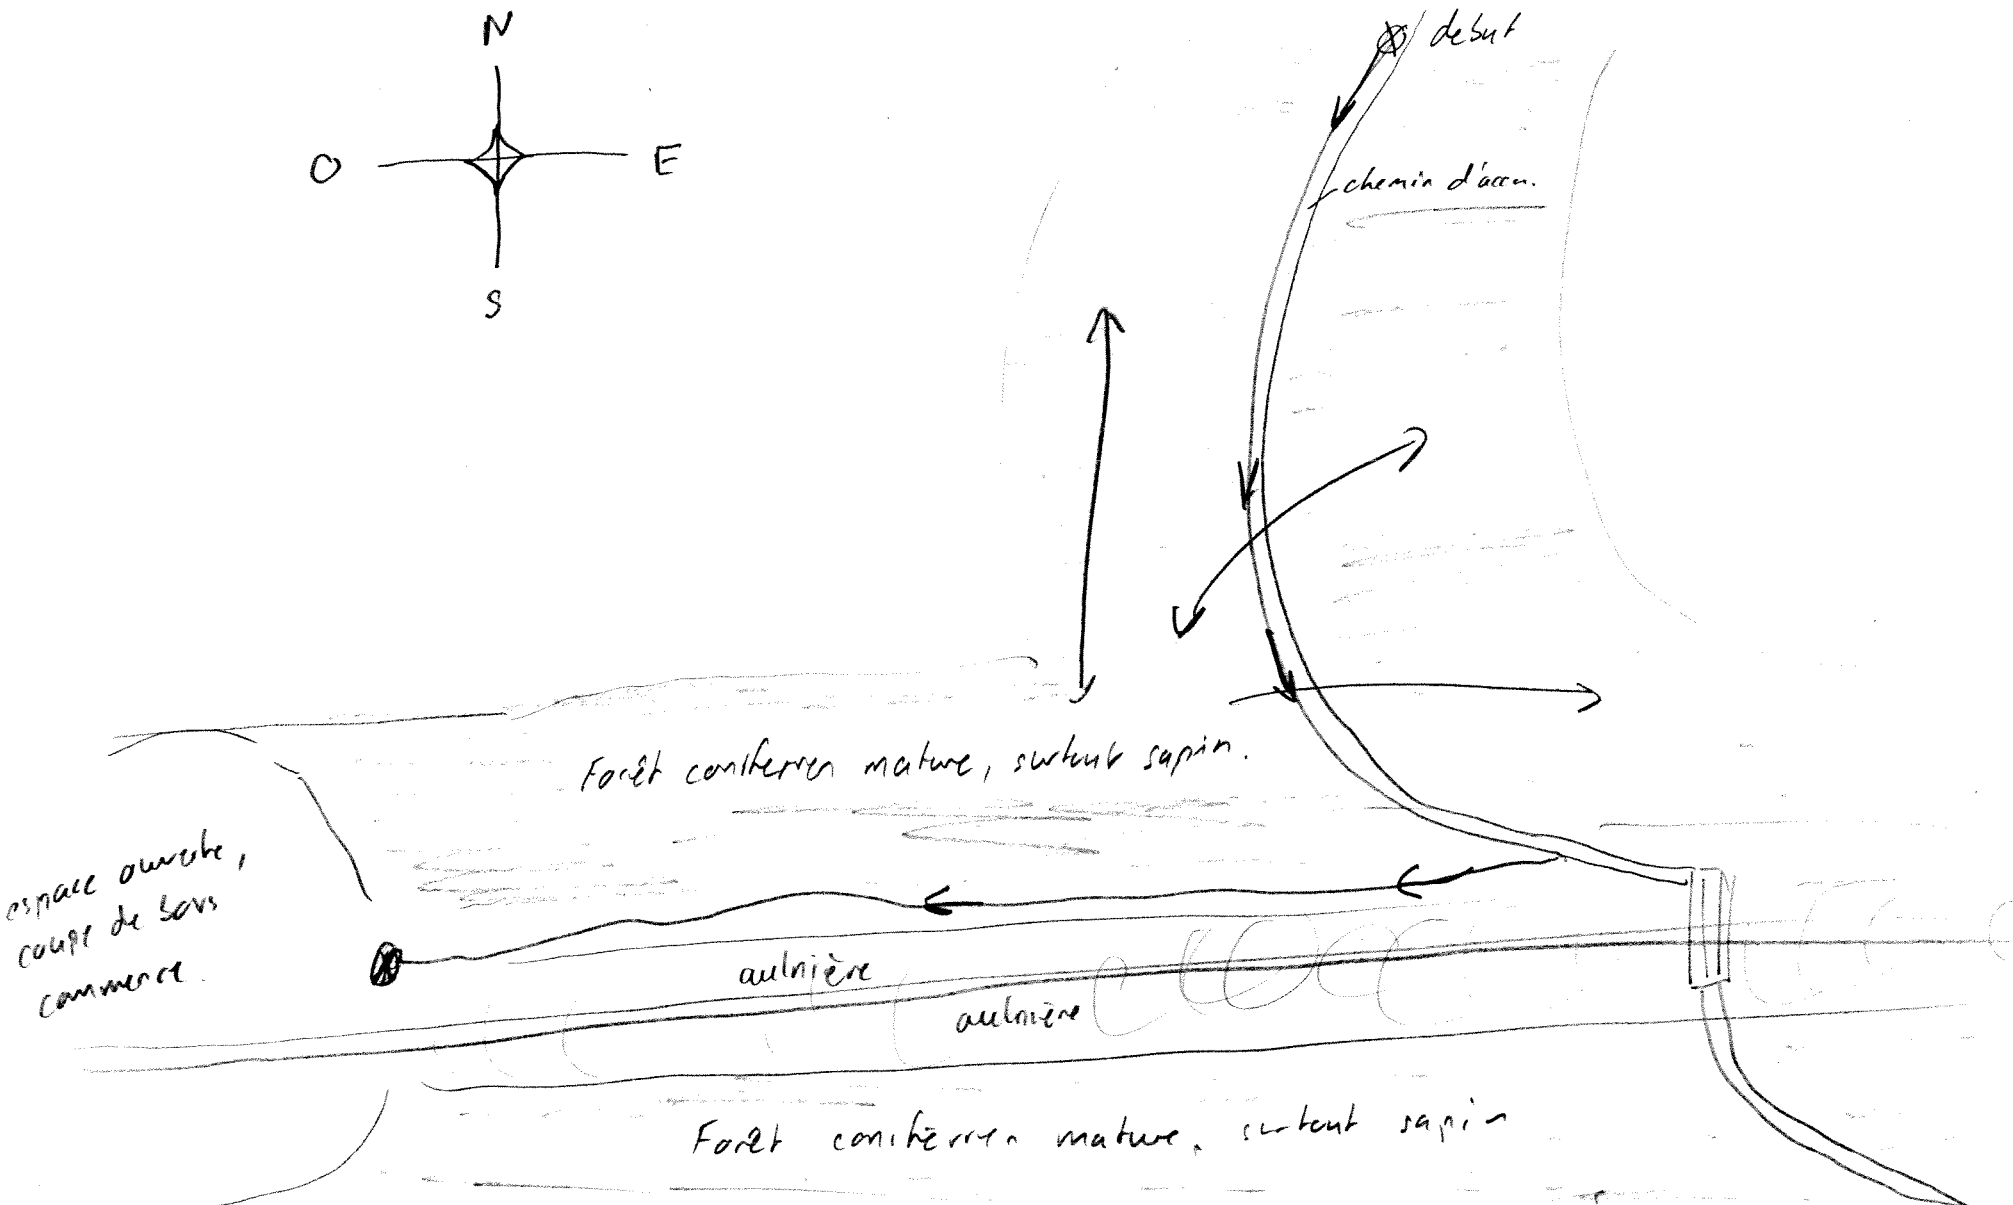 N
debut
O
E
chemin d'accu.
S
Forêt coniferren mature, surtout sapin.
espace ouverte,
coupe de bois
commence.
aulnière
aulnière
Forêt conifèrren mature, surtout sapin